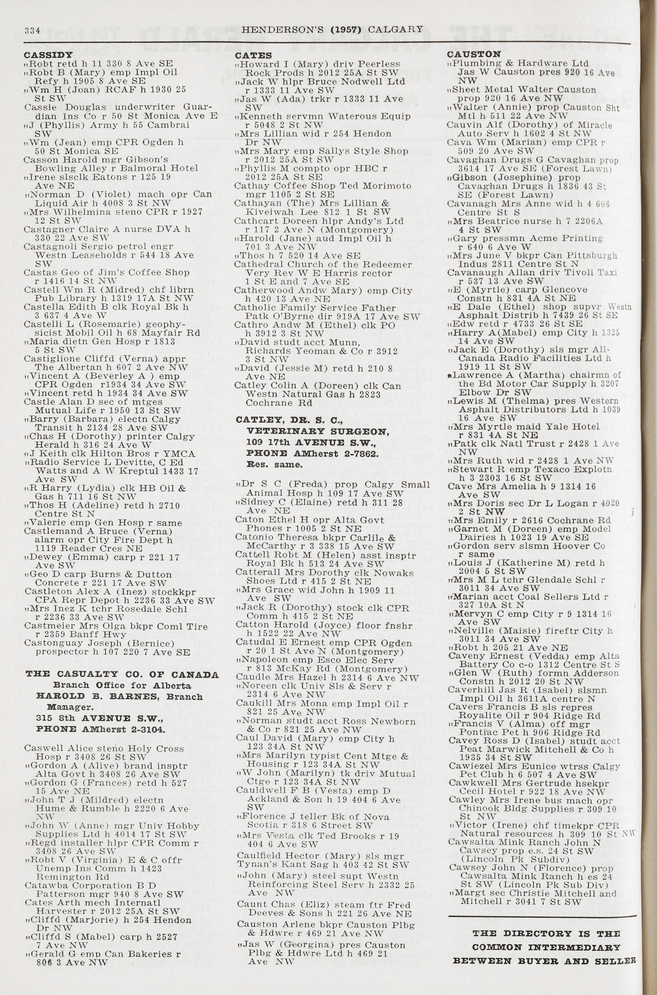 334
HENDERSON'S (1957) CALGARY
CASSIDY
"Robt retd h 11 330 8 Ave SE
"Robt B (Mary) emp Impl Oil
Refy h 1905 8 Ave SE
"Wm H (Joan) RCAF h 1930 25
St SW
Cassie Douglas underwriter Guar-
dian Ins Co r 50 St Monica Ave E
"J (Phyllis) Army h 55 Cambrai
SW
"Wm (Jean) emp CPR Ogden h
50 St Monica SE
Casson Harold mgr Gibson's
Bowling Alley r Balmoral Hotel
"Irene slsclk Eatons r 125 19
Ave NE
"Norman D (Violet) mach opr Can
Liquid Air h 4008 3 St NW
"Mrs Wilhelmina steno CPR r 1927
12 St SW
Castagner Claire A nurse DVA h
330 22 Ave SW
Castagnoli Sergio petrol engr
Westn Leaseholds r 544 18 Ave
SW
Castas Geo of Jim's Coffee Shop
r 1416 14 St NW
Castell Wm R (Mildred) chf librn
Pub Library h 1319 17A St NW
Castella Edith B clk Royal Bk h
3 637 4 Ave W
Castelli L (Rosemarie) geophy-
sicist Mobil Oil h 68 Mayfair Rd
"Maria dietn Gen Hosp r 1813
5 St SW
Castiglione Cliffd (Verna) appr
The Albertan h 607 2 Ave NW
"Vincent A (Beverley A ) emp
CPR Ogden r1934 34 Ave SW
"Vincent retd h 1934 34 Ave SW
Castle Alan D sec of mtges
Mutual Life r 1950 13 St SW
"Barry (Barbara) electn Calgy
Transit h 2134 28 Ave SW
"Chas H (Dorothy) printer Calgy
Herald h 316 24 Ave W
"J Keith clk Hilton Bros r YMCA
"Radio Service L Devitte, C Ed
Watts and A W Kreptul 1433 17
Ave SW
"R Harry (Lydia) clk HB Oil &
Gas h 711 16 St NW
"Thos H (Adeline) retd h 2710
Centre St N
"Valerie emp Gen Hosp r same
Castlemand A Bruce (Verna)
alarm opr City Fire Dept h
1119 Reader Cres NE
"Dewey (Emma) carp r 221 17
Ave SW
"Geo D carp Burns & Dutton
Concrete r 221 17 Ave SW
Castleton Alex A (Inez) stockkpr
CPA Repr Depot h 2236 33 Ave SW
"Mrs Inez K tchr Rosedale Schl
r 2236 33 Ave SW
Castmeier Mrs Olga bkpr Coml Tire
r 2359 Banff Hwy
Castonguay Joseph (Bernice)
prospector h 107 220 7 Ave SE
THE CASUALTY CO. OF CANADA
Branch Office for Alberta
HAROLD B. BARNES, Branch
Manager.
315 8th AVENUE S.W.,
PHONE AMherst 2-3104.
Caswell Alice steno Holy Cross
Hosp r 3408 26 St SW
"Gordon A (Alive) brand insptr
Alta Govt h 3408 26 Ave SW
"Gordon G (Frances) retd h 527
15 Ave NE
"John T J (Mildred) electn
Hume & Rumble h 2220 6 Ave
NW
"John W (Anne) mgr Univ Hobby
Supplies Ltd h 4014 17 St SW
"Regd installer hlpr CPR Comm r
3408 26 Ave SW
"Robt V (Virginia) E & C offr
Unemp Ins Comm h 1423
Remington Rd
Catawba Corporation B D
Patterson mgr 940 8 Ave SW
Cates Arth mech Internatl
Harvester r 2012 25A St SW
"Cliffd (Marjorie) h 254 Hendon
Dr NW
"Cliffd S (Mabel) carp h 2527
7 Ave NW
"Gerald G emp Can Bakeries r
806 3 Ave NW
CATES
"Howard I (Mary) driv Peerless
Rock Prods h 2012 25A St SW
"Jack W hlpr Bruce Nodwell Ltd
r 1333 11 Ave SW
"Jas W (Ada) trkr r 1333 11 Ave
SW
"Kenneth servmn Waterous Equip
r 5048 2 St NW
"Mrs Lillian wid r 254 Hendon
Dr NW
"Mrs Mary emp Sallys Style Shop
r 2012 25A St SW
"Phyllis M compto opr HBC r
2012 25A St SE
Cathay Coffee Shop Ted Morimoto
mgr 1105 2 St SE
Cathayan (The) Mrs Lillian &
Kiveiwah Lee 812 1 St SW
Cathcart Doreen hlpr Andy's Ltd
r 117 2 Ave N (Montgomery)
"Harold (Jane) aud Impl Oil h
701 3 Ave NW
"Thos h 7 520 14 Ave SE
Cathedral Church of the Redeemer
Very Rev W E Harris rector
1 St E and 7 Ave SE
Catherwood Andw Mary) emp City
h 420 13 Ave NE
Catholic Family Service Father
Patk O'Byrne dir 919A 17 Ave SW
Cathro Andw M (Ethel) clk PO
h 3912 3 St NW
"David studt acct Munn,
Richards Yeoman & Co r 3912
3 St NW
"David (Jessie M) retd h 210 8
Ave NE
Catley Colin A (Doreen) clk Can
Westn Natural Gas h 2823
Cochrane Rd
CATLEY, DR. S. C.,
VETERINARY SURGEON,
109 17th AVENUE S.W.,
PHONE AMherst 2-7862.
Res. same.
"Dr S C (Freda) prop Calgy Small
Animal Hosp h 109 17 Ave SW
"Sidney C (Elaine) retd h 311 28
Ave NE
Caton Ethel H opr Alta Govt
Phones r 1005 2 St NE
Catonio Theresa bkpr Carlile &
McCarthy r 3 338 15 Ave SW
Cattell Robt M (Helen) asst insptr
Royal Bk h 513 24 Ave SW
Catterall Mrs Dorothy clk Nowaks
Shoes Ltd r 415 2 St NE
"Mrs Grace wid John h 1909 11
Ave SW
"Jack R (Dorothy) stock clk CPR
Comm h 415 2 St NE
Catton Harold (Joyce) floor fnshr
h 1522 22 Ave NW
Catudal E Ernest emp CPR Ogden
r 20 1 St Ave N (Montgomery)
"Napoleon emp Esco Elec Serv
r 813 McKay Rd (Montgomery)
Caudle Mrs Hazel h 2314 6 Ave NW
"Noreen clk Univ Sls & Serv r
2314 6 Ave NW
Caukill Mrs Mona emp Impl Oil r
821 25 Ave NW
"Norman studt acct Ross Newborn
& Co r 821 25 Ave NW
Caul David (Mary) emp City h
123 34A St NW
"Mrs Marilyn typist Cent Mtge &
Housing r 123 34A St NW
"W John (Marilyn) tk driv Mutual
Ctge r 123 34A St NW
Cauldwell F B (Vesta) emp D
Ackland & Son h 19 404 6 Ave
SW
"Florence J teller Bk of Nova
Scotia r 318 6 Street SW
"Mrs Vesta clk Ted Brooks r 19
404 6 Ave SW
Caulfield Hector (Mary) sls mgr
Tynan's Kant Sag h 403 42 St SW
"John (Mary) steel supt Westn
Reinforcing Steel Serv h 2332 25
Ave NW
Caunt Chas (Eliz) steam ftr Fred
Deeves & Sons h 221 26 Ave NE
Causton Arlene bkpr Causton Plbg
& Hdwre r 469 21 Ave NW
"Jas W (Georgina) pres Causton
Plbg & Hdwre Ltd h 469 21
Ave NW
CAUSTON
"Plumbing & Hardware Ltd
Jas W Causton pres 920 16 Ave
NW
"Sheet Metal Walter Causton
prop 920 16 Ave NW
"Walter (Annie) prop Causton Sht
Mtl h 511 22 Ave NW
Cauvin Alf (Dorothy) of Miracle
Auto Serv h 1602 4 St NW
Cava Wm (Marian) emp CPR r
509 20 Ave SW
Cavaghan Drugs G Cavaghan prop
3614 17 Ave SE (Forest Lawn)
"Gibson (Josephine) prop
Cavaghan Drugs h 1836 43 St
SE (Forest Lawn)
Cavanagh Mrs Anne wid h 4 606
Centre St S
"Mrs Beatrice nurse h 7 2206A
4 St SW
"Gary pressmn Acme Printing
r 640 6 Ave W
"Mrs June V bkpr Can Pittsburgh
Indus 2811 Centre St N
Cavanaugh Allan driv Tivoli Taxi
r 537 13 Ave SW
"E (Myrtle) carp Glencove
Constn h 831 4A St NE
"E Dale (Ethel) shop supvr Westn
Asphalt Distrib h 7439 26 St SE
"Edw retd r 4733 26 St SE
"Harry A(Mabel) emp City h 1325
14 Ave SW
"Jack E (Dorothy) sls mgr All-
Canada Radio Facilities Ltd h
1919 11 St SW
"Lawrence A (Martha) chairmn of
the Bd Motor Car Supply h 3207
Elbow Dr SW
"Lewis M (Thelma) pres Western
Asphalt Distributors Ltd h 1039
16 Ave SW
"Mrs Myrtle maid Yale Hotel
r 831 4A St NE
"Patk clk Natl Trust r 2428 1 Ave
NW
"Mrs Ruth wid r 2428 1 Ave NW
"Stewart R emp Texaco Explotn
h 3 2303 16 St SW
Cave Mrs Amelia h 9 1314 16
Ave SW
"Mrs Doris sec Dr L Logan r 4020
2 St NW
"Mrs Emily r 2616 Cochrane Rd
"Garnet M (Doreen) emp Model
Dairies h 1023 19 Ave SE
"Gordon serv slsmn Hoover Co
r same
"Louis J (Katherine M) retd h
2004 5 St SW
"Mrs M L tchr Glendale Schl r
3011 34 Ave SW
"Marian acct Coal Sellers Ltd r
327 10A St N
"Mervyn C emp City r 9 1314 16
Ave SW
"Nelville (Maisie) fireftr City h
3011 34 Ave SW
"Robt h 205 21 Ave NE
Caveny Ernest (Vedda) emp Alta
Battery Co c-o 1312 Centre St S
"Glen W (Ruth) formn Adderson
Constn h 2012 20 St NW
Caverhill Jas R (Isabel) slsmn
Impl Oil h 3611A centre N
Cavers Francis B sls repres
Royalite Oil r 904 Ridge Rd
"Francis V (Alma) off mgr
Pontiac Pet h 906 Ridge Rd
Cavey Ross D (Isabel) studt acct
Peat Marwick Mitchell & Co h
1935 34 St SW
Cawiezel Mrs Eunice wtrss Calgy
Pet Club h 6 507 4 Ave SW
Cawkwell Mrs Gertrude hsekpr
Cecil Hotel r 922 18 Ave NW
Cawley Mrs Irene bus mach opr
Chinook Bldg Supplies r 309 10
St NW
"Victor (Irene) chf timekpr CPR
Natural resources h 309 10 St NW
Cawsalta Mink Ranch John N
Cawsey prop e.s. 24 St SW
(Lincoln Pk Subdiv)
Cawsey John N (Florence) prop
Cawsalta Mink Ranch h es 24
St SW (Lincoln Pk Sub Div)
"Margt sec Christie Mitchell and
Mitchell r 3041 7 St SW
THE DIRECTORY IS THE
COMMON INTERMEDIARY
BETWEEN BUYER AND SELLER